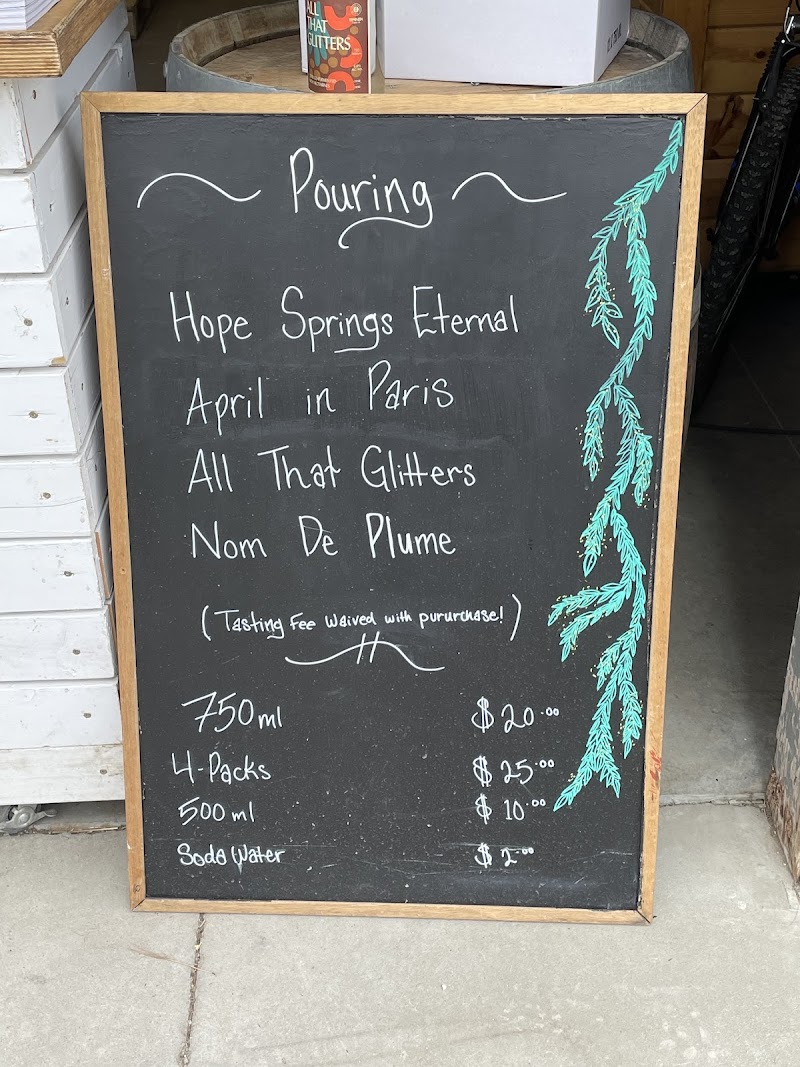 ALL
THAT
GLITTERS
Pouring
Hope Springs Eternal
April in Paris
All That Glitters
Nom De Plume
(Tasting Fee Waived with pururchase!)
750ml $20.00
4-Packs $25.00
500ml $10.00
Soda Water $2.00